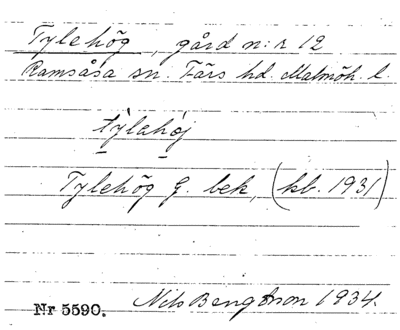 Tylehög, gård n:r 12
Ramsåsa sn. Färs hd. Malmöh. l.
tỳlahój
Tylehög G. bek, (kb. 1931)
Nr 5590. Nils Bengtson 1934.